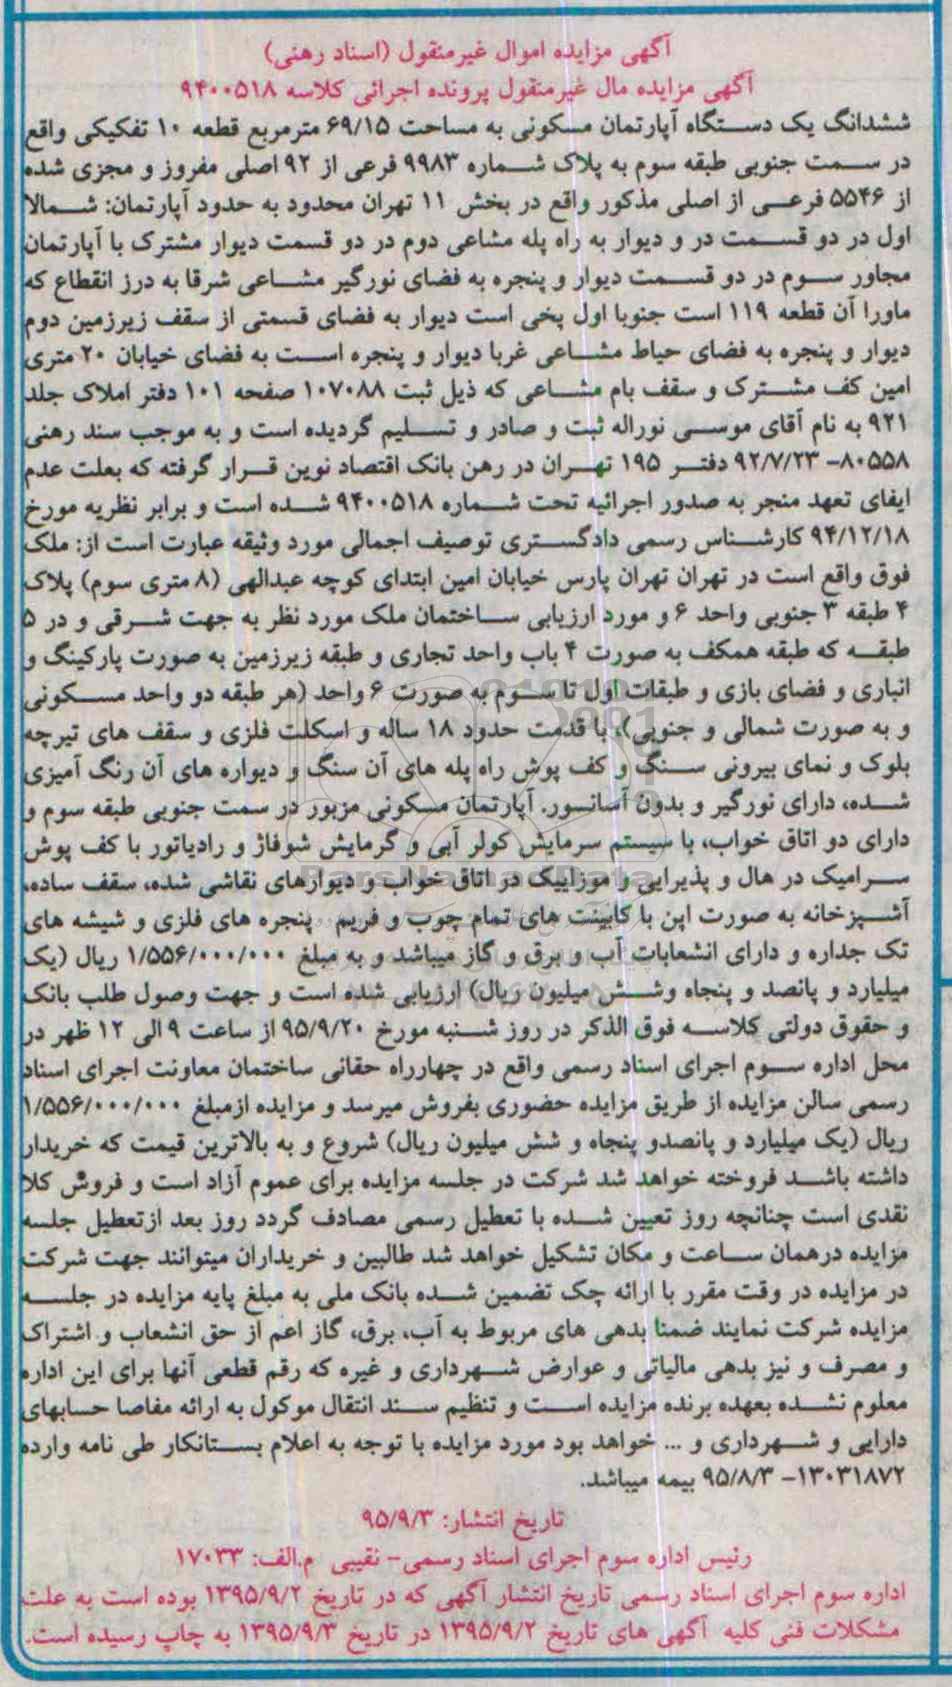 آگهی مزایده اموال غیرمنقول (اسناد رهنی)
آگهی مزایده مال غیرمنقول پرونده اجرائی کلاسه ۹۴۰۰۵۱۸
ششدانگ یک دستگاه آپارتمان مسکونی به مساحت ۶۹/۱۵ مترمربع قطعه ۱۰ تفکیکی واقع
در سمت جنوبی طبقه سوم به پلاک شماره ۹۹۸۳ فرعی از ۹۲ اصلی مفروز و مجزی شده
از ۵۵۴۶ فرعی از اصلی مذکور واقع در بخش ۱۱ تهران محدود به حدود آپارتمان: شمالا
اول در دو قسمت در و دیوار به راه پله مشاعی دوم در دو قسمت دیوار مشترک با آپارتمان
مجاور سوم در دو قسمت دیوار و پنجره به فضای نورگیر مشاعی شرقا به درز انقطاع که
ماورا آن قطعه ۱۱۹ است جنوبا اول پخی است دیوار به فضای قسمتی از سقف زیرزمین دوم
دیوار و پنجره به فضای حیاط مشاعی غربا دیوار و پنجره است به فضای خیابان ۲۰ متری
امین کف مشترک و سقف بام مشاعی که ذیل ثبت ۱۰۷۰۸۸ صفحه ۱۰۱ دفتر املاک جلد
۹۲۱ به نام آقای موسی نوراله ثبت و صادر و تسلیم گردیده است و به موجب سند رهنی
۸۰۵۵۸- ۹۲/۷/۲۳ دفتر ۱۹۵ تهران در رهن بانک اقتصاد نوین قرار گرفته که بعلت عدم
ایفای تعهد منجر به صدور اجرائیه تحت شماره ۹۴۰۰۵۱۸ شده است و برابر نظریه مورخ
۹۴/۱۲/۱۸ کارشناس رسمی دادگستری توصیف اجمالی مورد وثیقه عبارت است از: ملک
فوق واقع است در تهران تهران پارس خیابان امین ابتدای کوچه عبدالهی (۸ متری سوم) پلاک
۴ طبقه ۳ جنوبی واحد ۶ و مورد ارزیابی ساختمان ملک مورد نظر به جهت شرقی و در ۵
طبقه که طبقه همکف به صورت ۴ باب واحد تجاری و طبقه زیرزمین به صورت پارکینگ و
انباری و فضای بازی و طبقات اول تا سوم به صورت ۶ واحد (هر طبقه دو واحد مسکونی
و به صورت شمالی و جنوبی)، با قدمت حدود ۱۸ ساله و اسکلت فلزی و سقف های تیرچه
بلوک و نمای بیرونی سنگ و کف پوش راه پله های آن سنگ و دیواره های آن رنگ آمیزی
شده، دارای نورگیر و بدون آسانسور. آپارتمان مسکونی مزبور در سمت جنوبی طبقه سوم و
دارای دو اتاق خواب، با سیستم سرمایش کولر آبی و گرمایش شوفاژ و رادیاتور با کف پوش
سرامیک در هال و پذیرایی و موزاییک در اتاق خواب و دیوارهای نقاشی شده، سقف ساده،
آشپزخانه به صورت اپن با کابینت های تمام چوب و فریم پنجره های فلزی و شیشه های
تک جداره و دارای انشعابات آب و برق و گاز میباشد و به مبلغ ۱/۵۵۶/۰۰۰/۰۰۰ ریال (یک
میلیارد و پانصد و پنجاه وشش میلیون ریال) ارزیابی شده است و جهت وصول طلب بانک
و حقوق دولتی کلاسه فوق الذکر در روز شنبه مورخ ۹۵/۹/۲۰ از ساعت ۹ الی ۱۲ ظهر در
محل اداره سوم اجرای اسناد رسمی واقع در چهارراه حقانی ساختمان معاونت اجرای اسناد
رسمی سالن مزایده از طریق مزایده حضوری بفروش میرسد و مزایده ازمبلغ ۱/۵۵۶/۰۰۰/۰۰۰
ریال (یک میلیارد و پانصدو پنجاه و شش میلیون ریال) شروع و به بالاترین قیمت که خریدار
داشته باشد فروخته خواهد شد شرکت در جلسه مزایده برای عموم آزاد است و فروش کلا
نقدی است چنانچه روز تعیین شده با تعطیل رسمی مصادف گردد روز بعد ازتعطیل جلسه
مزایده درهمان ساعت و مکان تشکیل خواهد شد طالبین و خریداران میتوانند جهت شرکت
در مزایده در وقت مقرر با ارائه چک تضمین شده بانک ملی به مبلغ پایه مزایده در جلسه
مزایده شرکت نمایند ضمنا بدهی های مربوط به آب، برق، گاز اعم از حق انشعاب و اشتراک
و مصرف و نیز بدهی مالیاتی و عوارض شهرداری و غیره که رقم قطعی آنها برای این اداره
معلوم نشده بعهده برنده مزایده است و تنظیم سند انتقال موکول به ارائه مفاصا حسابهای
دارایی و شهرداری و ... خواهد بود مورد مزایده با توجه به اعلام بستانکار طی نامه وارده
۱۳۰۳۱۸۷۲- ۹۵/۸/۳ بیمه میباشد.
تاریخ انتشار: ۹۵/۹/۳
رئیس اداره سوم اجرای اسناد رسمی- نقیبی م.الف: ۱۷۰۳۳
اداره سوم اجرای اسناد رسمی تاریخ انتشار آگهی که در تاریخ ۱۳۹۵/۹/۲ بوده است به علت
مشکلات فنی کلیه آگهی های تاریخ ۱۳۹۵/۹/۲ در تاریخ ۱۳۹۵/۹/۳ به چاپ رسیده است.